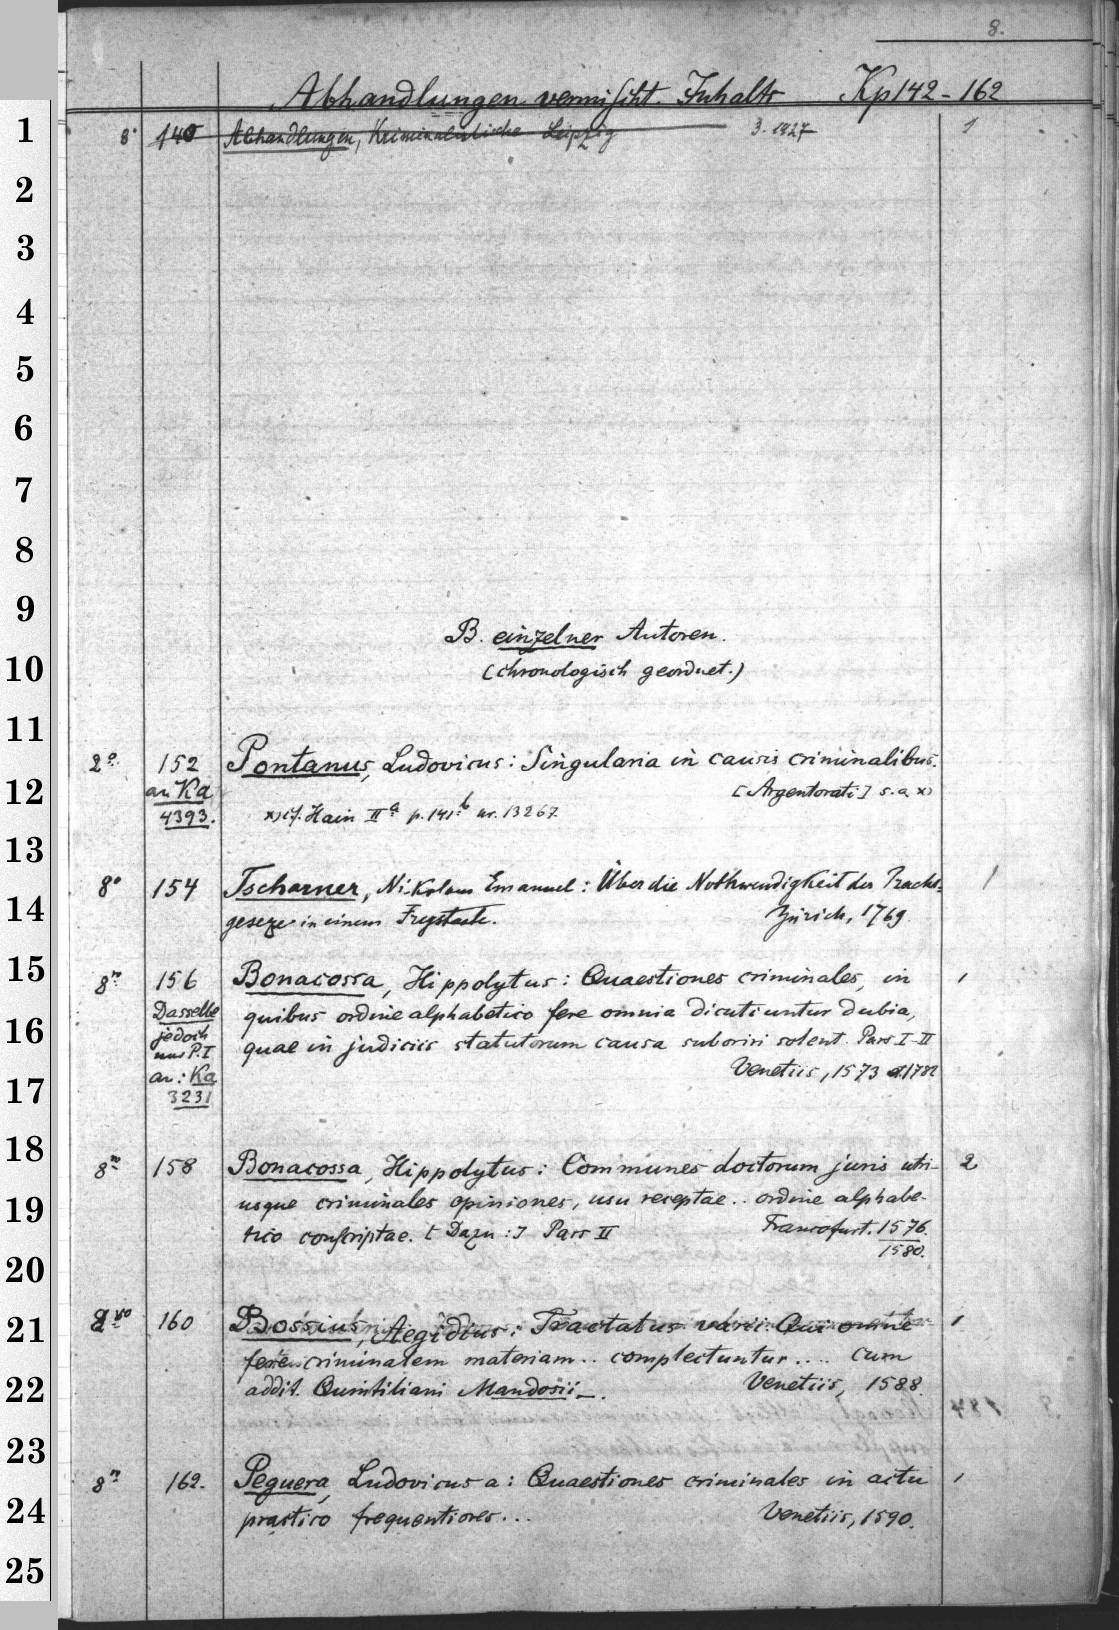 8.
Abhandlungen vermischt. Inhalts Kp 142-162
1 8° 140 Abhandlungen, Kriminalistische Leipzig 3. 1927 1
2
3
4
5
6
7
8
9
B. einzelner Autoren.
10 (chronologisch geordnet.)
11
2° 152 Pontanus, Ludovicus: Singularia in causis criminalibus.
12 an Ka [Argentorati] s.a. x)
4393. x) cf. Hain II a p. 141 b nr. 13267
13
8° 154 Tscharner, Nikolaus Emanuel: Über die Nothwendigkeit der Pracht-
14 geseze in einem Freystaate. Zürich, 1769.
15 8° 156 Bonacossa, Hippolytus: Quaestiones criminales, in
Dasselbe quibus ordine alphabetico fere omnia dicutiuntur dubia,
16 jedoch quae in judiciis statutorum causa suboriri solent. Pars I-II
nur P. I
an: Ka Venetiis, 1573
17 3231
18
8° 158 Bonacossa, Hippolytus: Communes doctorum juris utri- 2
19 usque criminales opiniones, usu receptae.. ordine alphabe-
tico conscriptae. [Dazu:] Pars II Francofurt. 1576.
1580.
20
21 8vo 160 Bossius, Aegidius: Tractatus varii: Qui omne 1
fere criminalem materiam.. complectuntur.... cum
22 addit. Quintiliani Mandosii_. Venetiis, 1588.
23
8° 162. Peguera, Ludovicus a: Quaestiones criminales in actu
24 practico frequentiores... Venetiis, 1590.
25